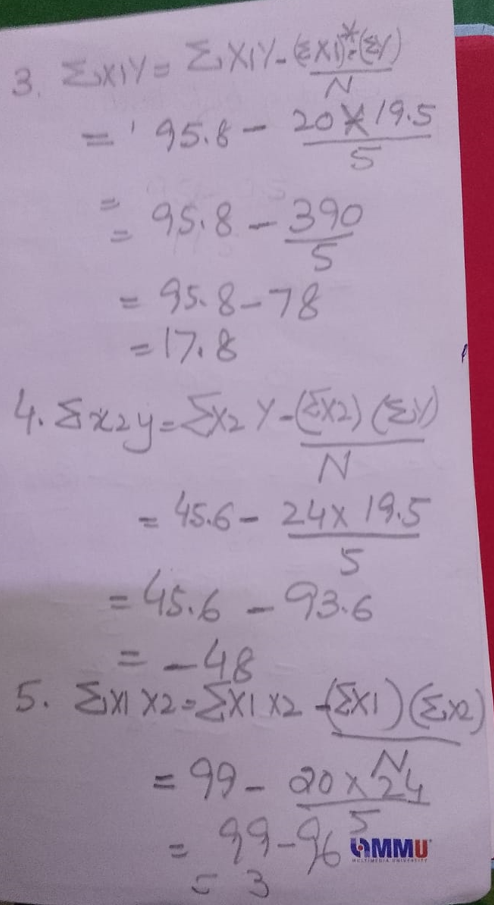 3. Σx1y = ΣX1Y - (ΣX1)*(ΣY)
N
= 95.8 - 20 * 19.5
5
= 95.8 - 390
5
= 95.8 - 78
= 17.8
4. Σx2y = ΣX2Y - (ΣX2) (ΣY)
N
= 45.6 - 24 x 19.5
5
= 45.6 - 93.6
= -48
5. Σx1x2 = ΣX1X2 - (ΣX1) (ΣX2)
N
= 99 - 20 x 24
5
= 99 - 96
= 3
MMU
MULTIMEDIA UNIVERSITY